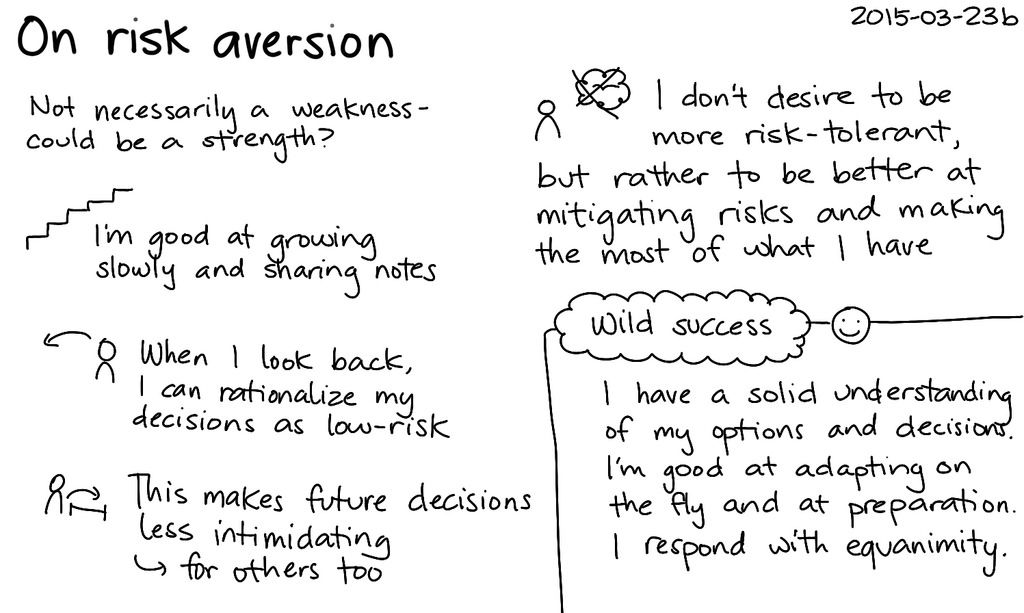 On risk aversion
2015-03-23b
Not necessarily a weakness-
could be a strength?
I'm good at growing
slowly and sharing notes
When I look back,
I can rationalize my
decisions as low-risk
This makes future decisions
less intimidating
↳ for others too
I don't desire to be
more risk-tolerant,
but rather to be better at
mitigating risks and making
the most of what I have
Wild success
I have a solid understanding
of my options and decisions.
I'm good at adapting on
the fly and at preparation.
I respond with equanimity.